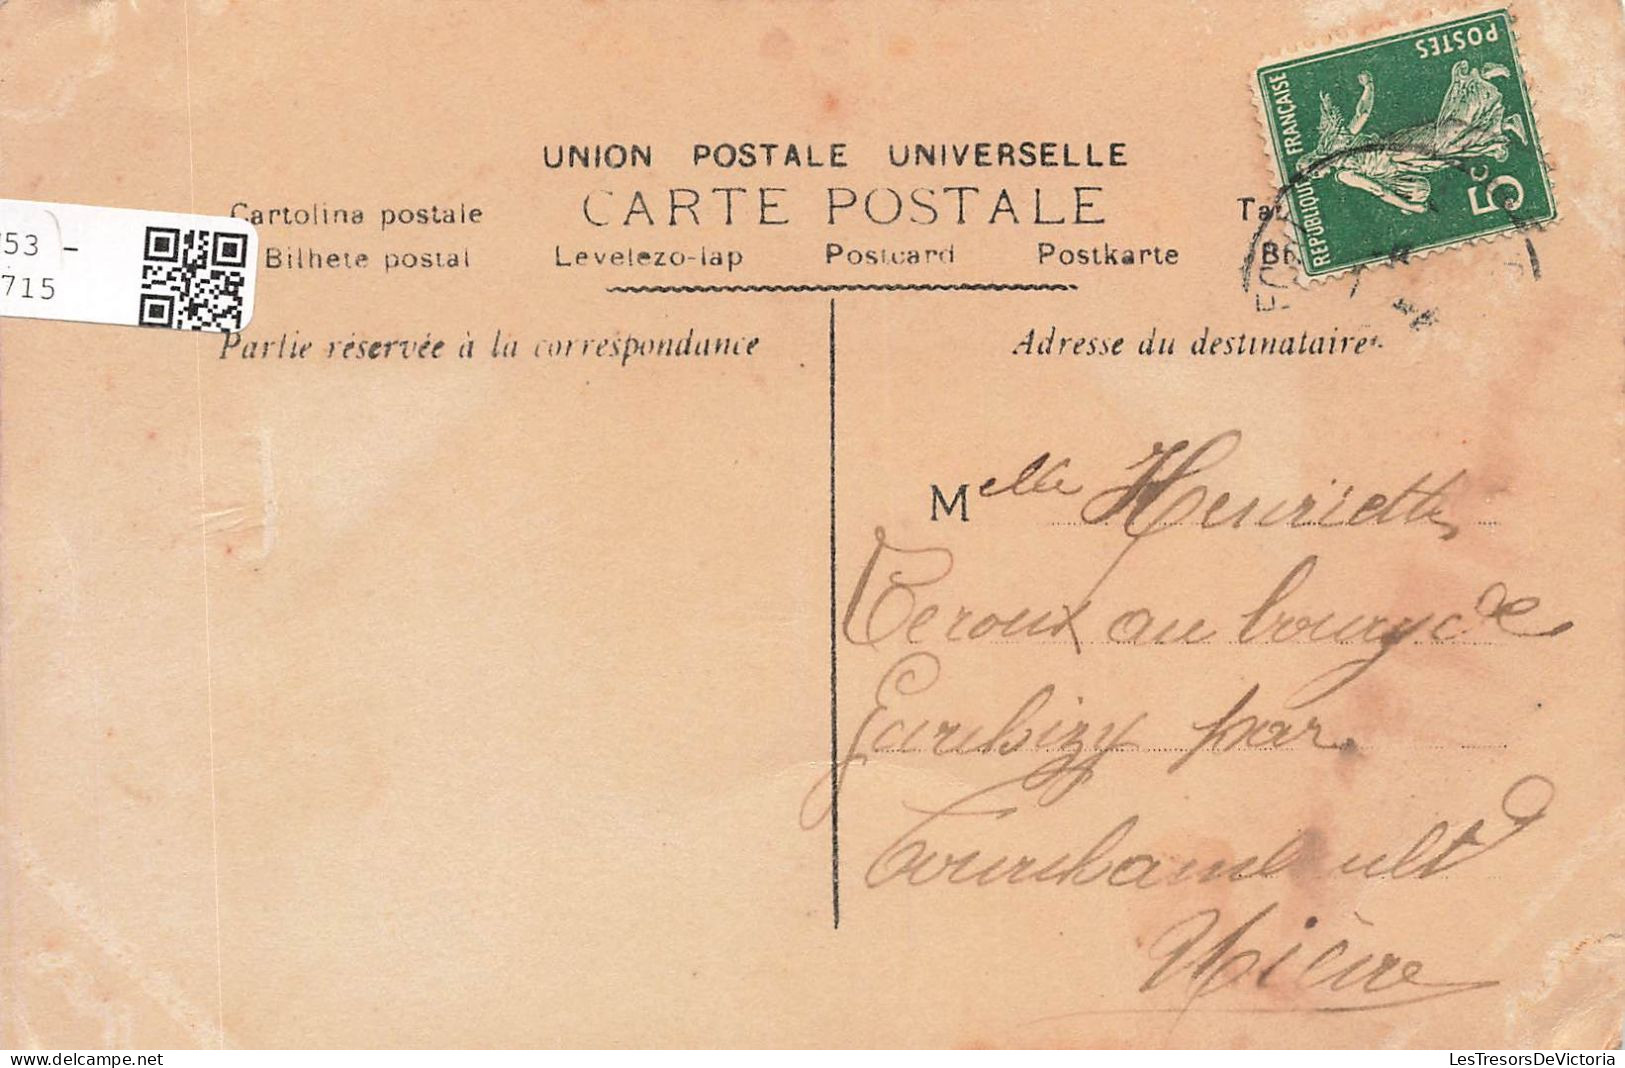 POSTES
RÉPUBLIQUE FRANÇAISE
5c
UNION POSTALE UNIVERSELLE
CARTE POSTALE
Cartolina postale
Bilhete postal Levelezo-lap Postcard Postkarte
53 -
715
Partie réservée à la correspondance
Adresse du destinataire
Melle Henriette
Teroux au bourg de
Garchizy par
Fourchambault
Nièvre
LesTresorsDeVictoria
delcampe.net